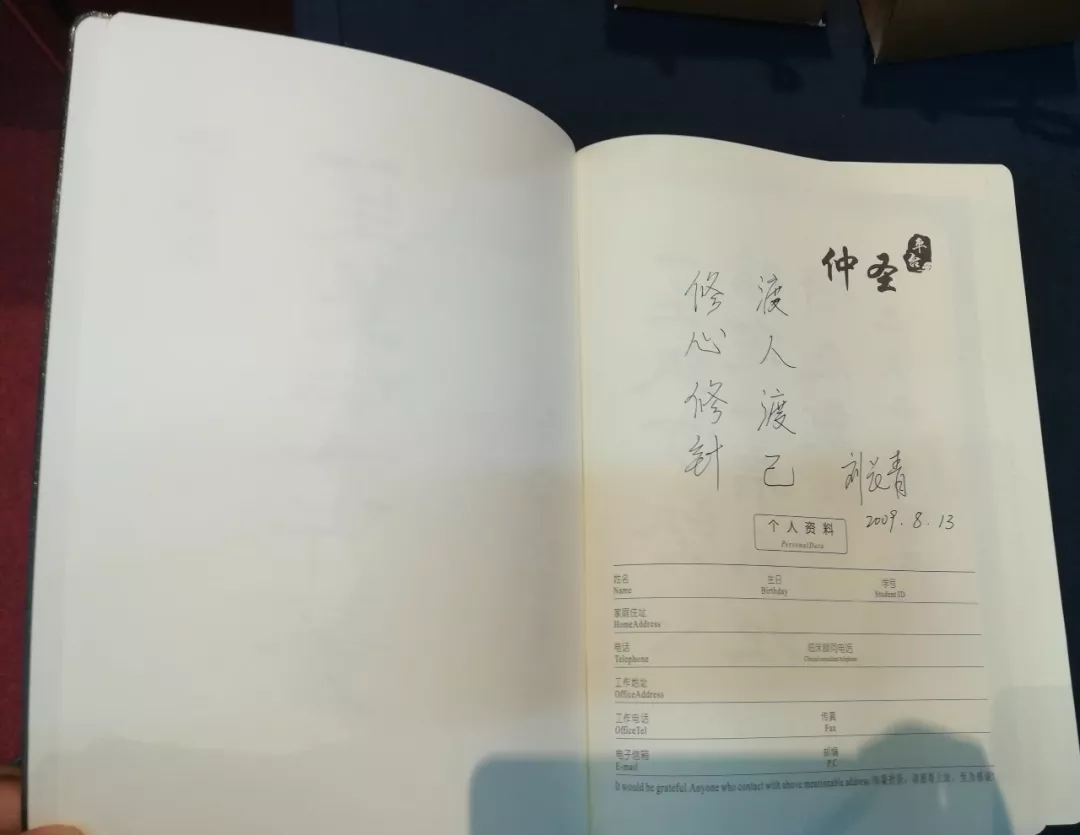 仲圣
平台
渡人渡己
修心修针
2009.8.13
个人资料
Personal Data
姓名 生日 学号
Name Birthday Student ID
家庭住址
HomeAddress
电话 临床顾问电话
Telephone
工作地址
OfficeAddress
工作电话 传真
OfficeTel Fax
电子信箱 邮编
E-mail P.C
It would be grateful.Anyone who contact with above mentionable address